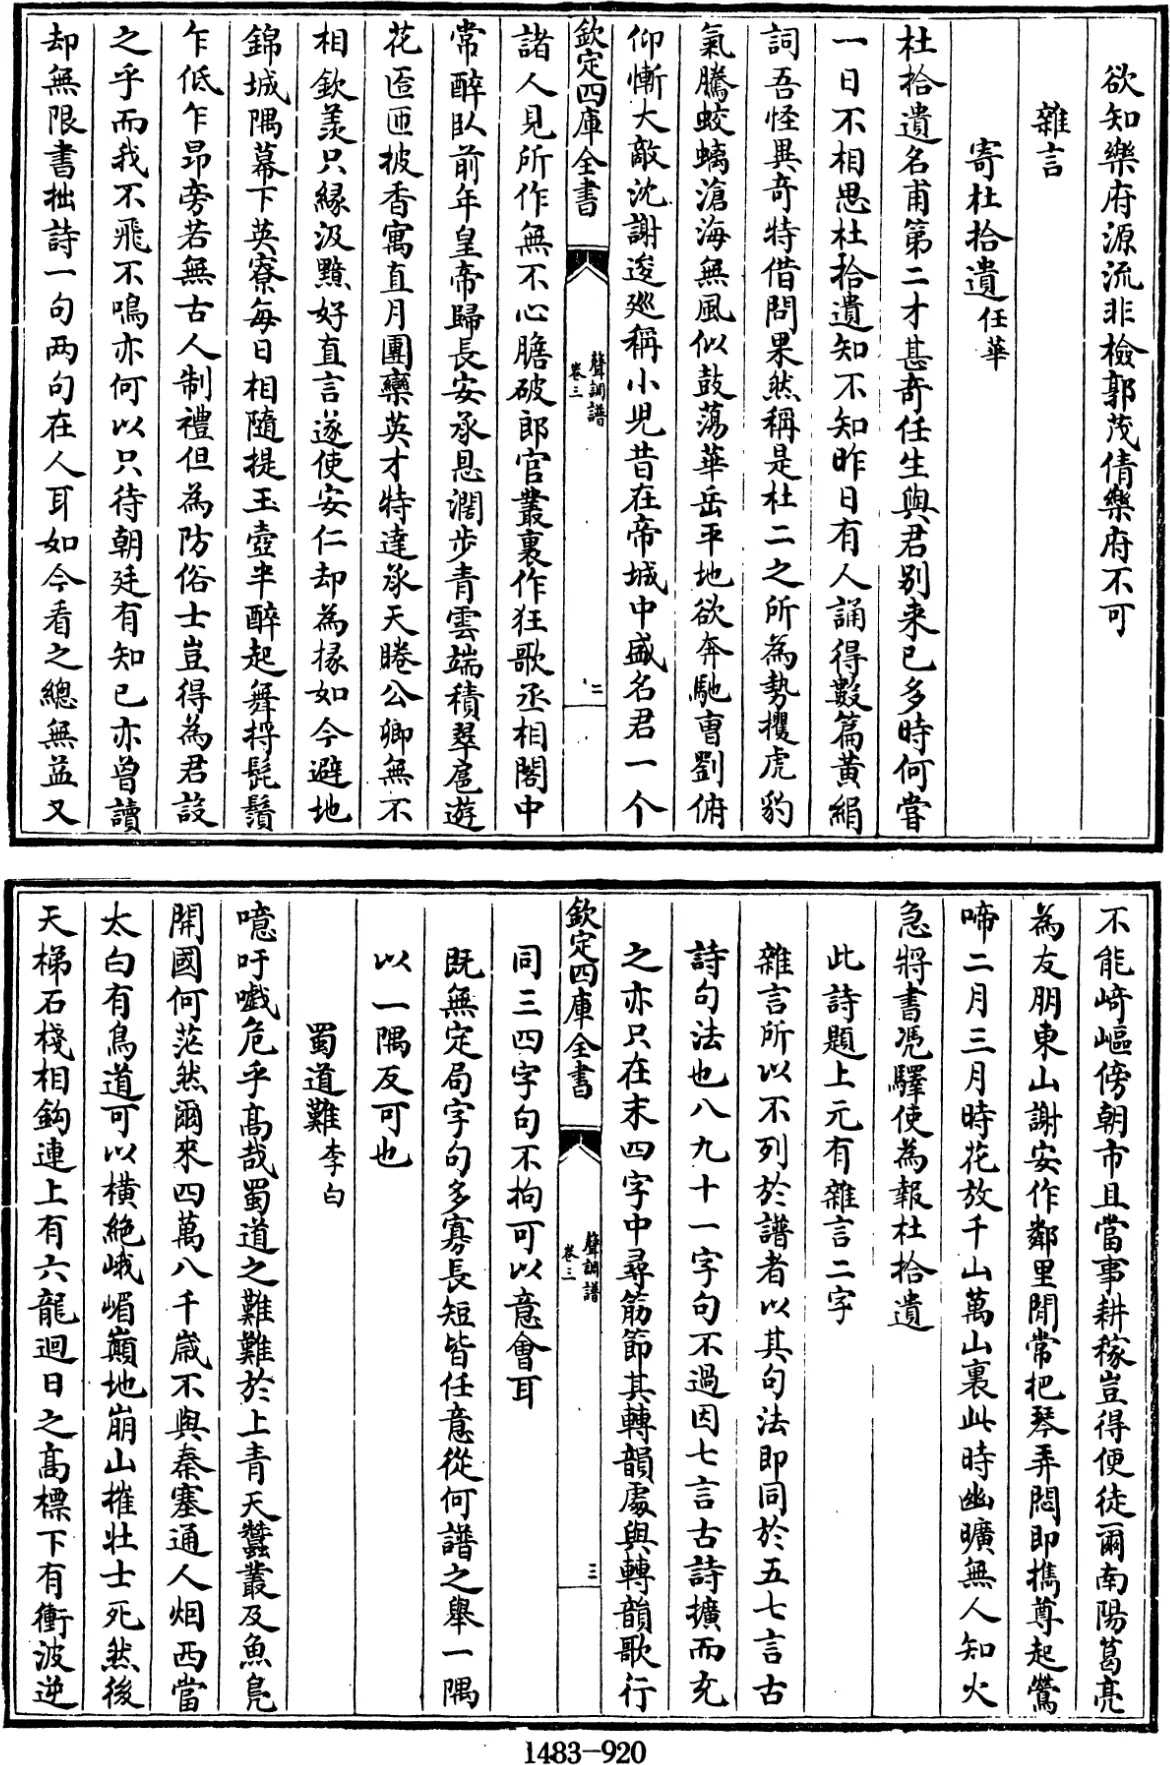 欲知樂府源流非檢郭茂倩樂府不可
雜言
寄杜拾遺任華
杜拾遺名甫第二才甚奇任生與君别来已多時何甞
一日不相思杜拾遺知不知昨日有人誦得數篇黄絹
詞吾怪異奇特借問果然稱是杜二之所為勢攫虎豹
氣騰蛟螭滄海無風似鼓蕩華岳平地欲奔馳曹劉俯
仰慚大敵沈謝逡廵稱小兒昔在帝城中盛名君一个
欽定四庫全書
聲調譜
卷三
二
諸人見所作無不心膽破郎官叢裏作狂歌丞相閣中
常醉臥前年皇帝歸長安承恩濶步青雲端積翠扈遊
花匼匝披香寓直月團欒英才特達承天睠公卿無不
相欽羡只緣汲黯好直言遂使安仁却為掾如今避地
錦城隅幕下英寮每日相隨提玉壺半醉起舞捋髭鬚
乍低乍昂旁若無古人制禮但為防俗士豈得為君設
之乎而我不飛不鳴亦何以只待朝廷有知己亦曾讀
却無限書拙詩一句兩句在人耳如今看之總無益又
不能崎嶇傍朝市且當事耕稼豈得便徒爾南陽葛亮
為友朋東山謝安作鄰里閒常把琴弄悶即擕尊起鶯
啼二月三月時花放千山萬山裏此時幽曠無人知火
急將書憑驛使為報杜拾遺
此詩題上元有雜言二字
雜言所以不列於譜者以其句法即同於五七言古
詩句法也八九十一字句不過因七言古詩擴而充
之亦只在末四字中尋筋節其轉韻處與轉韻歌行
欽定四庫全書
聲調譜
卷三
三
同三四字句不拘可以意會耳
既無定局字句多寡長短皆任意從何譜之舉一隅
以一隅反可也
蜀道難李白
噫吁嚱危乎髙哉蜀道之難難於上青天蠶叢及魚鳧
開國何茫然爾來四萬八千嵗不與秦塞通人烟西當
太白有鳥道可以横絶峨嵋巔地崩山摧壯士死然後
天梯石棧相鈎連上有六龍迴日之髙標下有衝波逆
1483-920